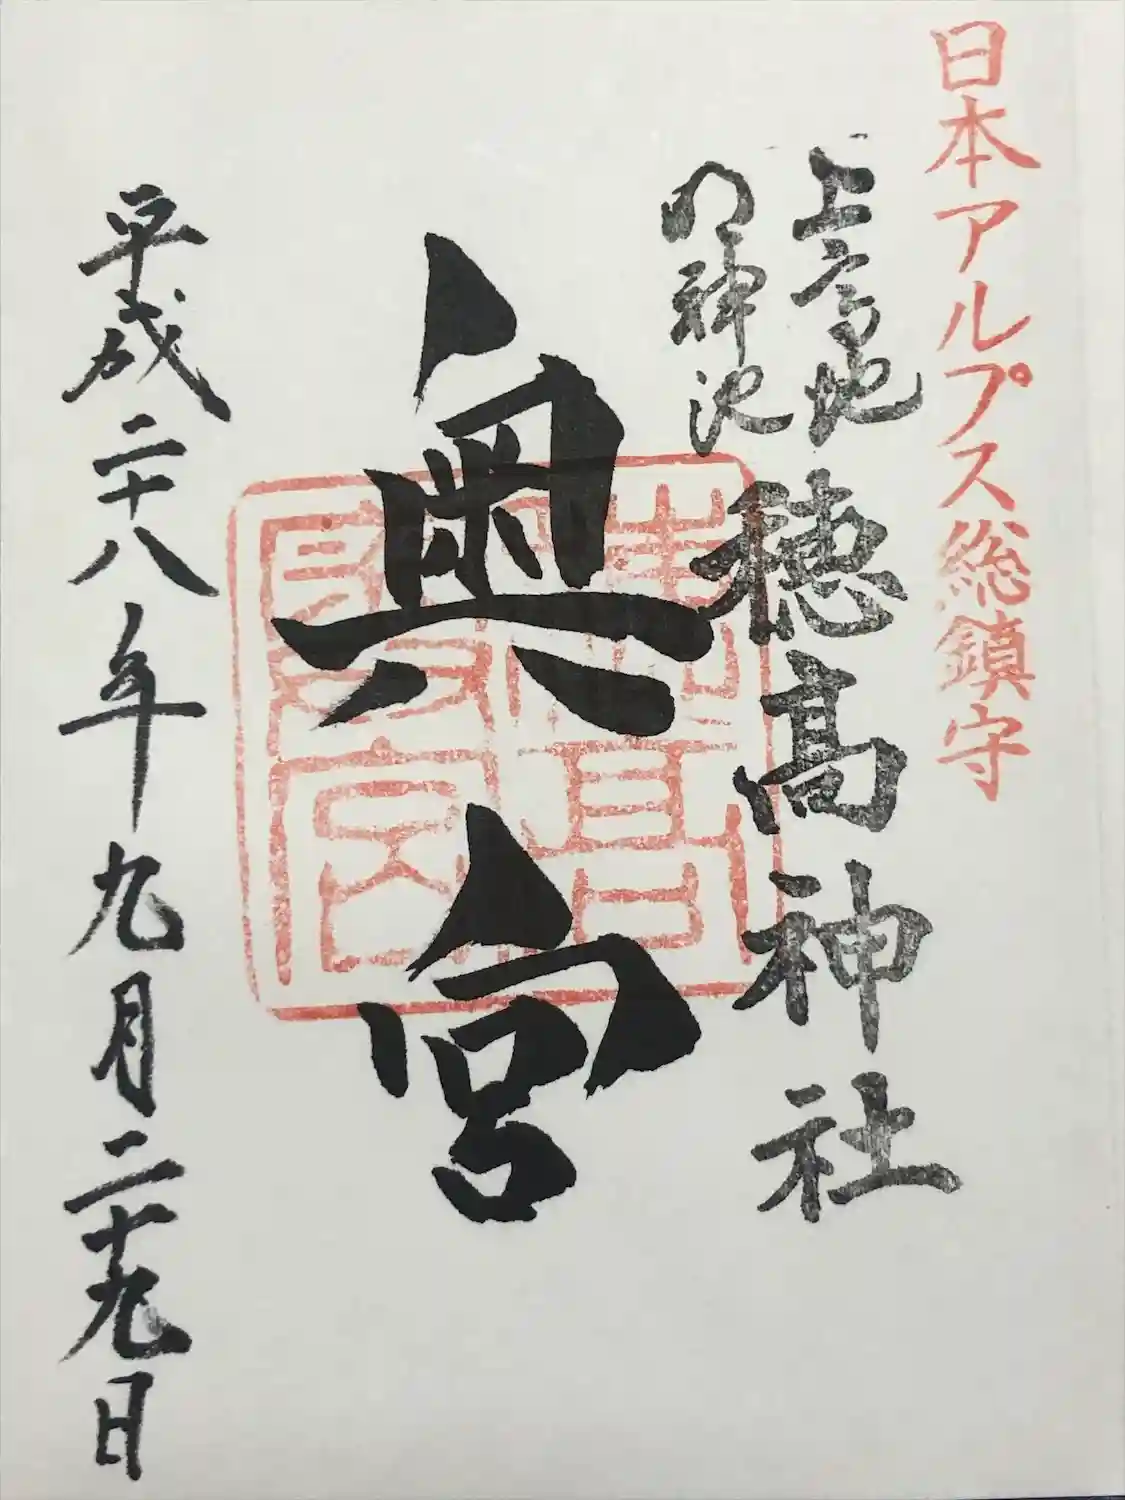 日本アルプス総鎮守
上高地
明神池
穂髙神社
奥宮
平成二十八年九月二十九日